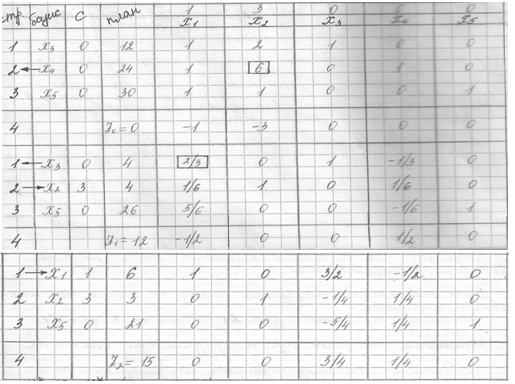 1 3 0 0 0
стр. базис С план X₁ X₂ X₃ X₄ X₅
1 X₃ 0 12 1 2 1 0 0
2 ← X₄ 0 24 1 6 0 1 0
3 X₅ 0 30 1 1 0 0 1
4 Z₀ = 0 -1 -3 0 0 0
1 ← X₃ 0 4 2/3 0 1 -1/3 0
2 → X₂ 3 4 1/6 1 0 1/6 0
3 X₅ 0 26 5/6 0 0 -1/6 1
4 Z₁ = 12 -1/2 0 0 1/2 0
1 → X₁ 1 6 1 0 3/2 -1/2 0
2 X₂ 3 3 0 1 -1/4 1/4 0
3 X₅ 0 21 0 0 -5/4 1/4 1
4 Z₂ = 15 0 0 3/4 1/4 0